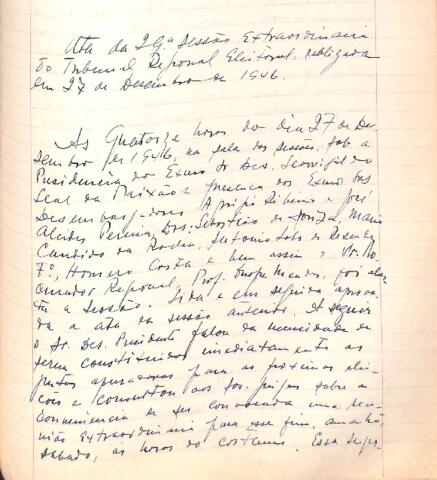 Ata da 29ª sessão Extraordinaria
do Tribunal Regional Eleitoral, realizada
em 27 de Dezembro de 1946.
As Quatorze horas do dia 27 de De-
zembro de 1946, na sala das sessões, sob a
Presidencia do Exmo Sr. Des.
Leal da Paixão e presença dos Exmos Srs
Desembargadores Agripa Ribeiro e José
Alcides Pereira, Drs. Sebastião de Souza, Mario
Candido da Rocha, Antonio Lobo de Resende
Fº, Homero Costa e bem assim o Dr. Pro-
curador Regional, Prof. Onofre Mendes, foi aber-
ta a Sessão. Lida e em seguida aprova-
da a ata da sessão anterior. A seguir
o Sr. Des. Presidente falou da necessidade de
serem constituidas imediatamente as
juntas apuradoras para as proximas elei-
ções e consultou aos Srs. juizes sobre a
conveniencia de ser convocada uma reu-
nião Extraordinaria para esse fim, amanhã,
sabado, as horas do costume. Essa suges-